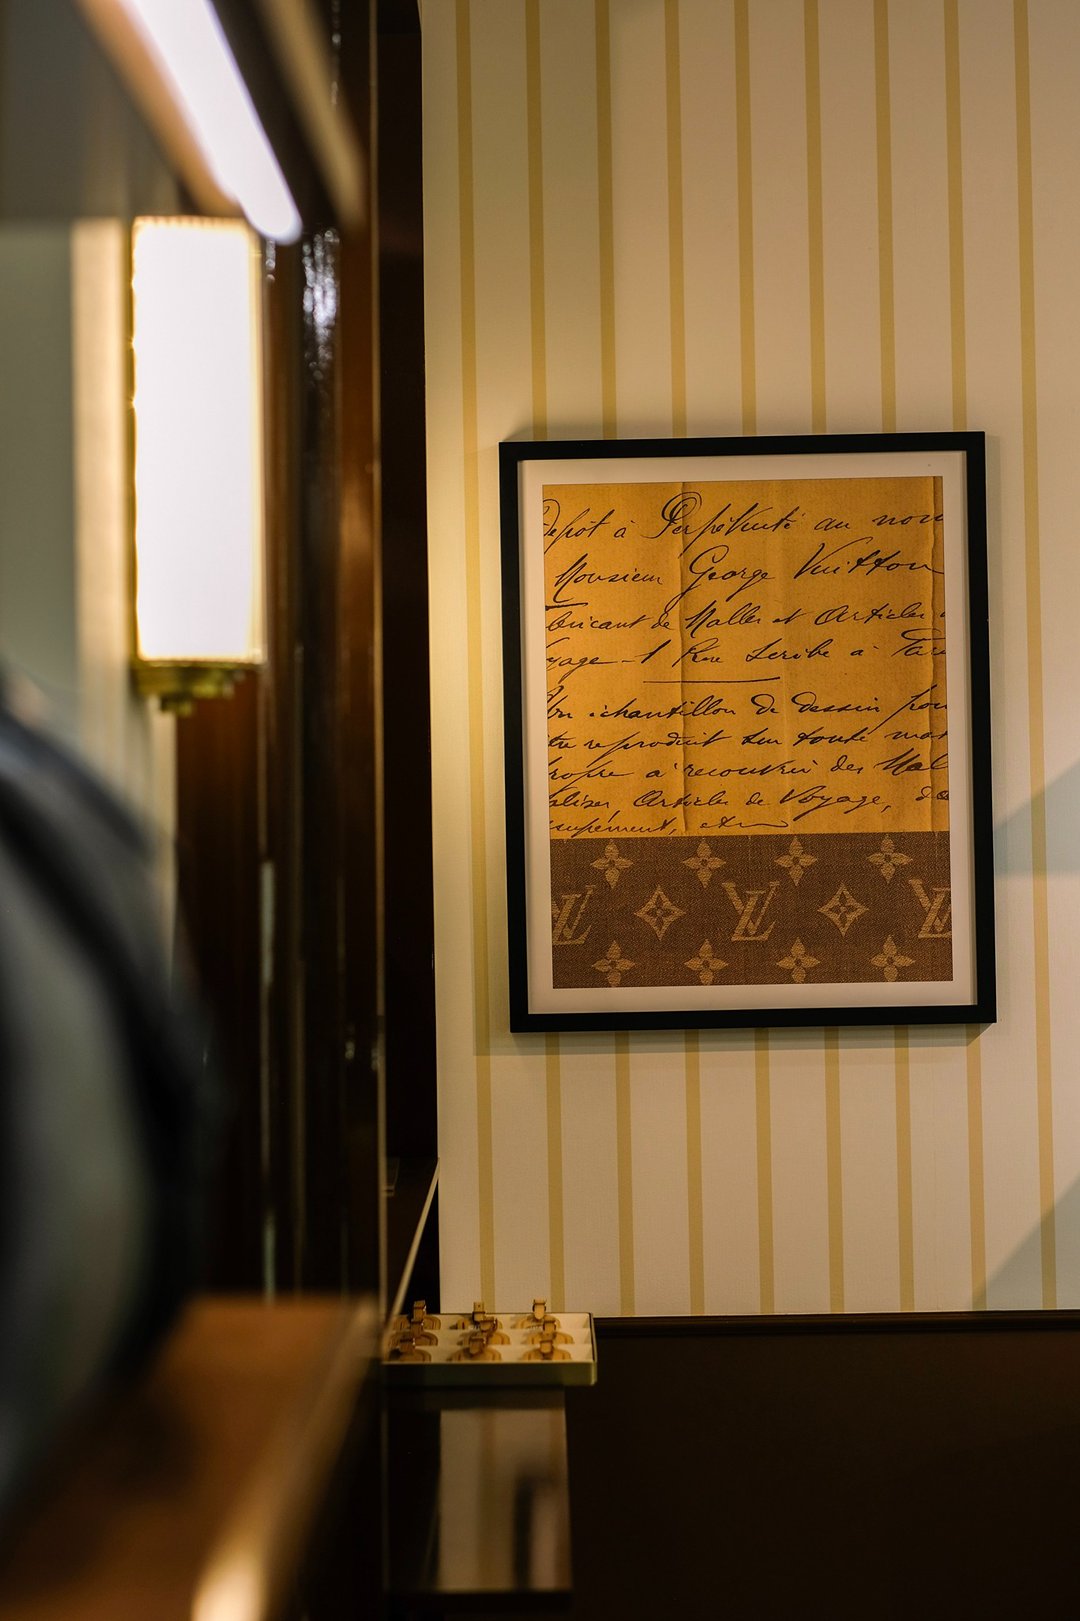 Depôt à Perpétuité au nom
Monsieur George Vuitton
bricant de Malles et Articles
yage - 1 Rue Scribe à Pari
Un échantillon de dessin pou
tre reproduit sur toute mat
ropre à recouvrir des Mal
alises Articles de Voyage, de
supément, etc
LV LV LV